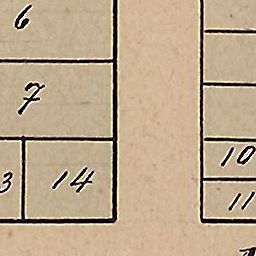 6
7
3 14
10
11